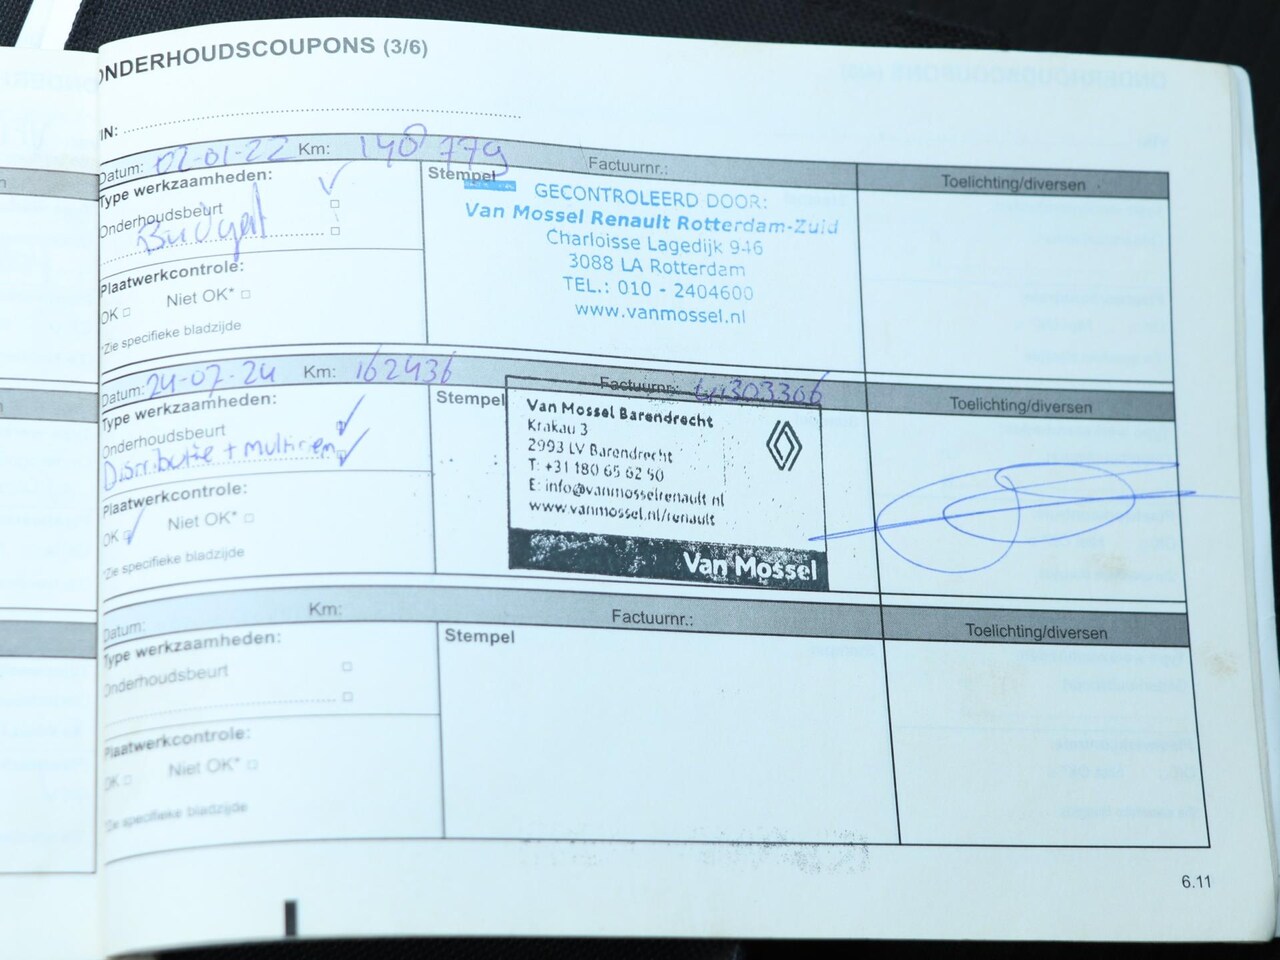 ONDERHOUDSCOUPONS (3/6)
IN:
Datum: 02-01-22 Km: 148 779 Factuurnr.:
Toelichting/diversen
Type werkzaamheden:
Onderhoudsbeurt
Budget
Plaatwerkcontrole:
OK Niet OK*
*Zie specifieke bladzijde
Stempel
GECONTROLEERD DOOR:
Van Mossel Renault Rotterdam-Zuid
Charloisse Lagedijk 946
3088 LA Rotterdam
TEL.: 010 - 2404600
www.vanmossel.nl
Datum: 24-07-24 Km: 162436 Factuurnr.:
Toelichting/diversen
Type werkzaamheden:
Onderhoudsbeurt
Distributie + multiriem
Plaatwerkcontrole:
OK Niet OK*
*Zie specifieke bladzijde
Stempel
Van Mossel Barendrecht
Krakau 3
2993 LV Barendrecht
T: +31 180 65 62 50
E: info@vanmosselrenault.nl
www.vanmossel.nl/renault
Van Mossel
Datum: Km: Factuurnr.:
Toelichting/diversen
Type werkzaamheden:
Onderhoudsbeurt
Plaatwerkcontrole:
OK Niet OK*
*Zie specifieke bladzijde
Stempel
6.11